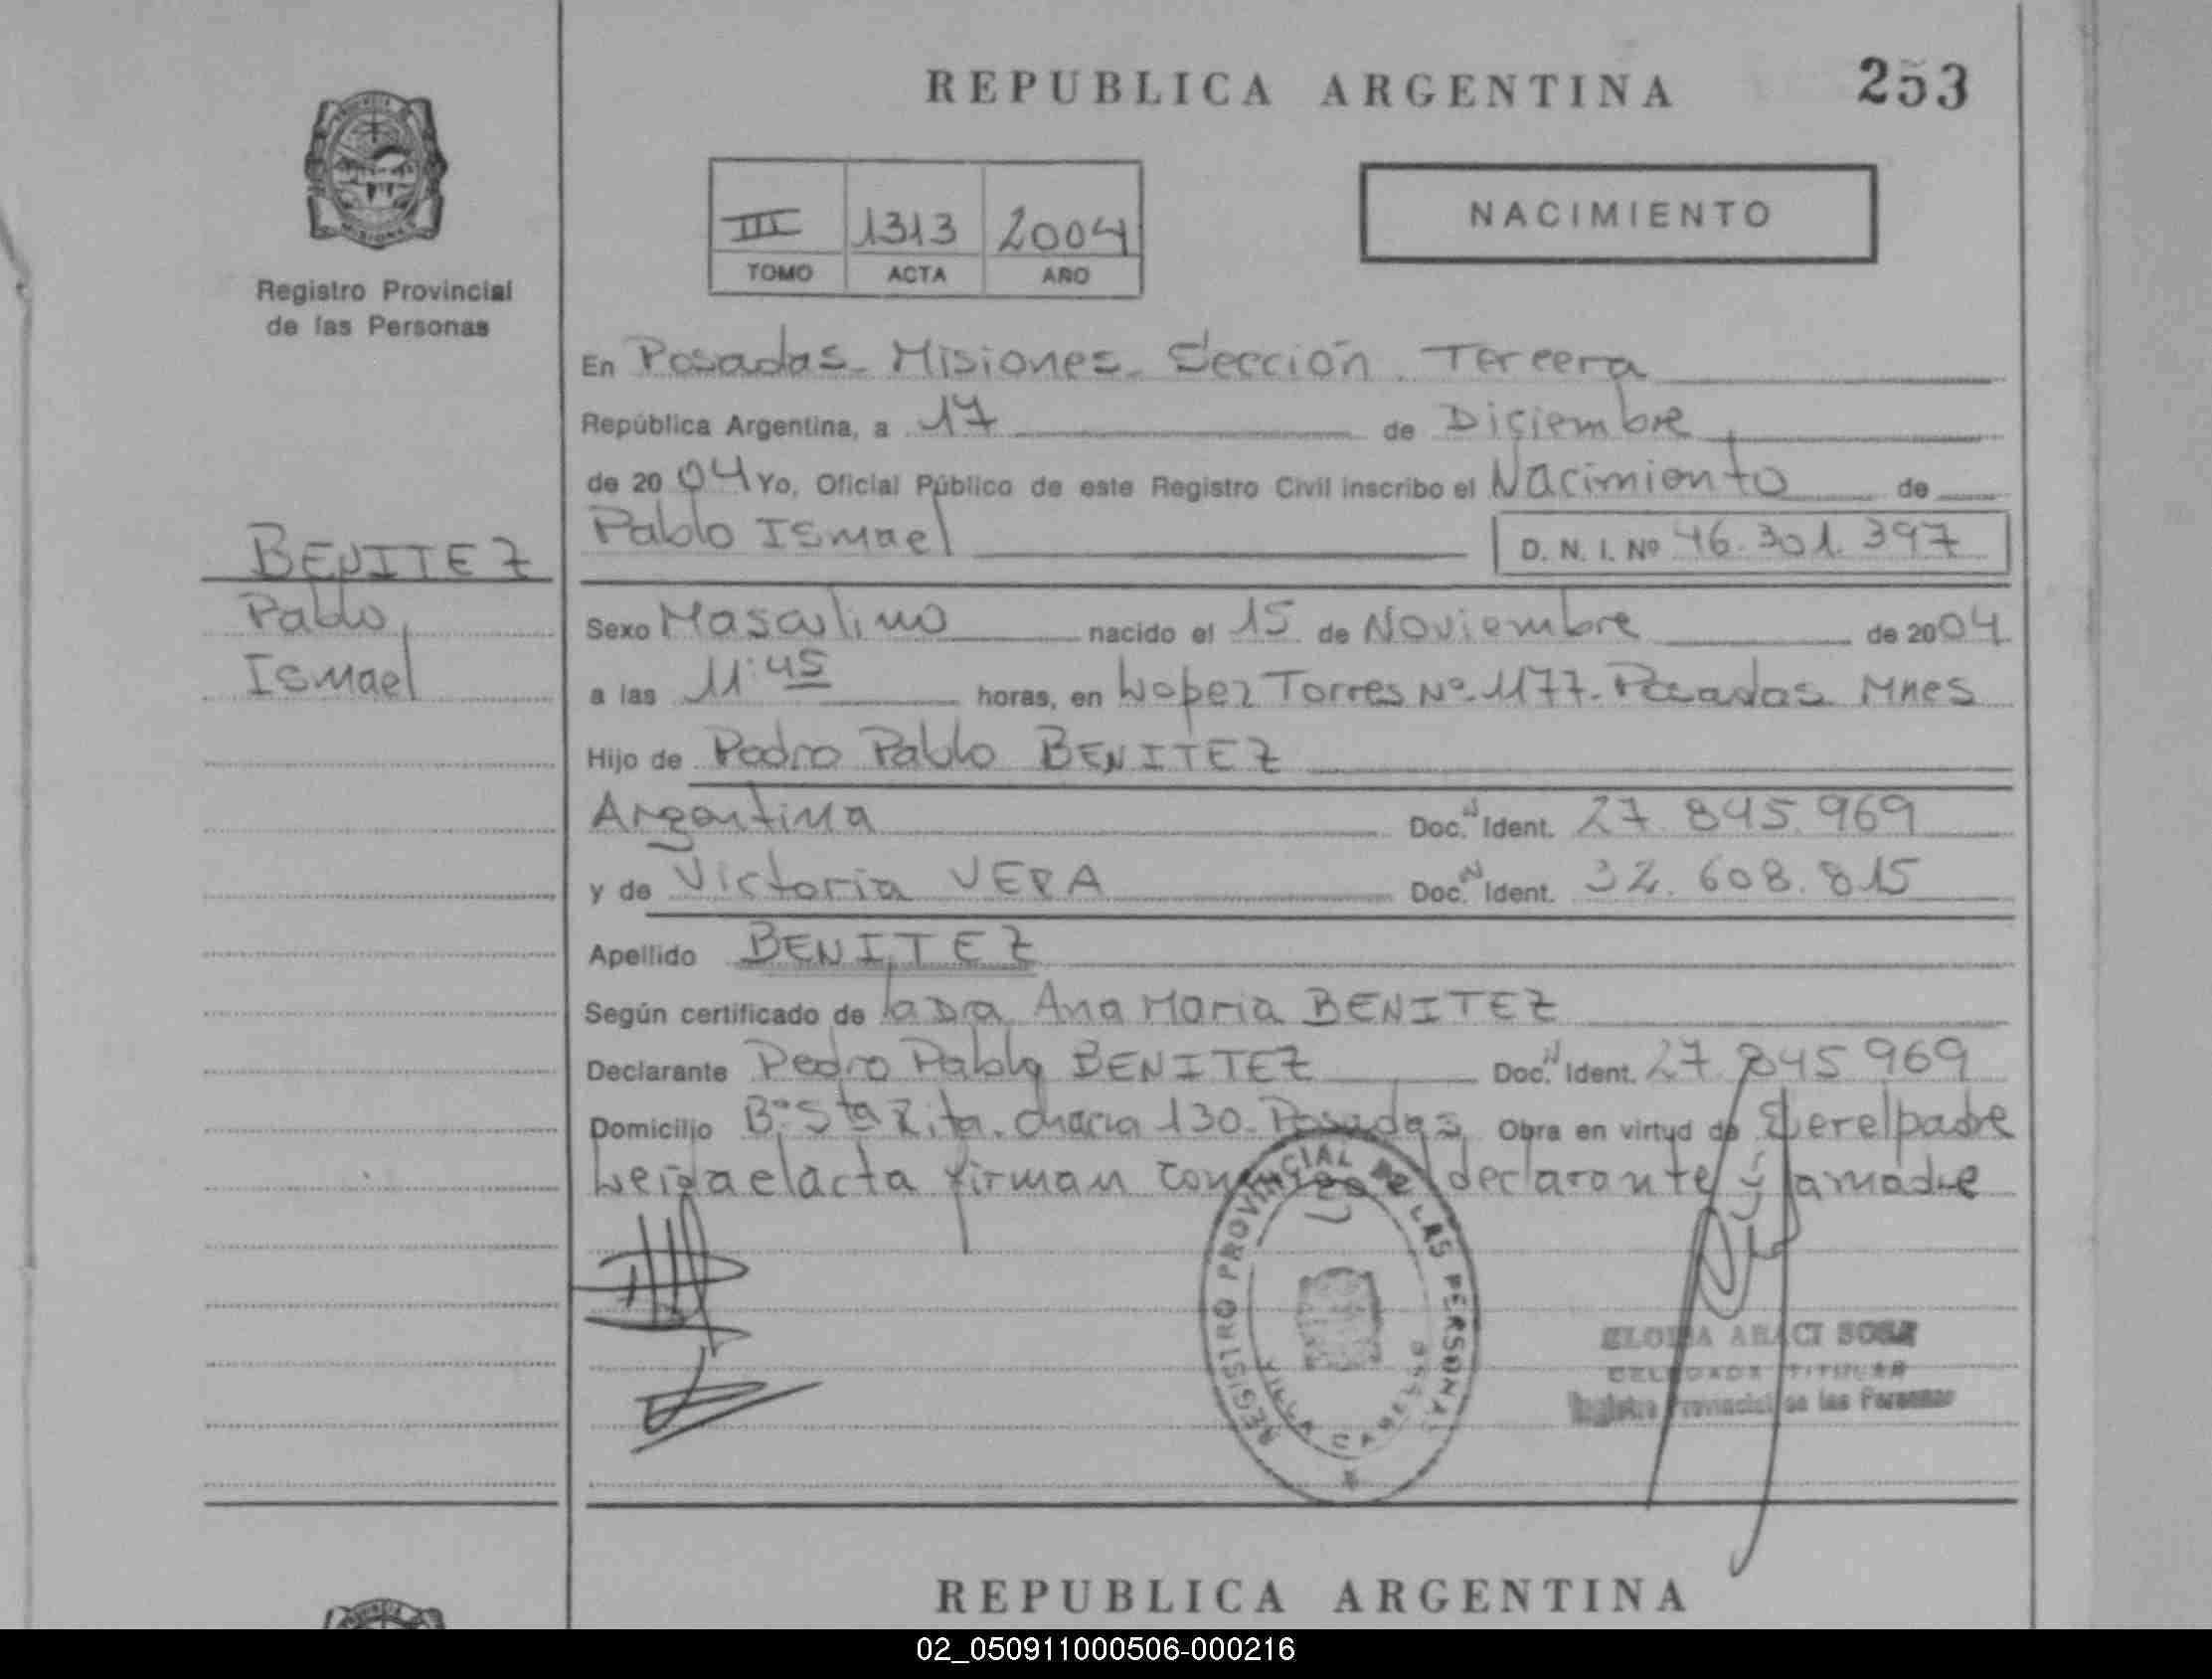 REPUBLICA ARGENTINA
253
III 1313 2004
TOMO ACTA AÑO
NACIMIENTO
Registro Provincial
de las Personas
En Posadas - Misiones - Sección Tercera
República Argentina, a 17 de Diciembre
de 2004 Yo, Oficial Público de este Registro Civil inscribo el Nacimiento de
Pablo Ismael D. N. I. Nº 46.301.397
BENITEZ
Pablo
Ismael
Sexo Masculino nacido el 15 de Noviembre de 2004
a las 11:45 horas, en Lopez Torres Nº 1177 - Posadas Mnes
Hijo de Pedro Pablo BENITEZ
Argentina Doc. N Ident. 27.845.969
y de Victoria VERA Doc. N Ident. 32.608.815
Apellido BENITEZ
Según certificado de la Dra Ana Maria BENITEZ
Declarante Pedro Pablo BENITEZ Doc. N Ident. 27.845969
Domicilio Bº Sta Rita. chacra 130 - Posadas Obra en virtud de Ser el padre
Leida el acta firman conmigo el declarante y la madre
REGISTRO PROVINCIAL DE LAS PERSONAS
VILLA CABELLO
ARACI SOSA
DELEGADA TITULAR
Registro Provincial de las Personas
REPUBLICA ARGENTINA
02_050911000506-000216